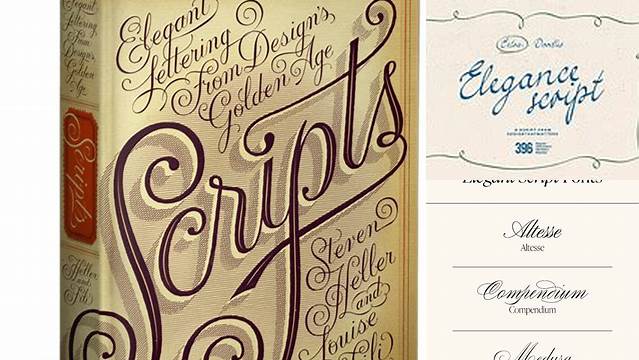 Elegant
Lettering
From Design's
Golden Age
Scripts
Steven
Heller
and
Louise
Fili
Elegant
Lettering
From
Design's
Golden
Age
Scripts
Heller
and
Fili
Extras Doodles
Elegance
script
A SCRIPT FROM
396
Elegant Script Fonts
Altesse
Altesse
Compendium
Compendium
Medusa